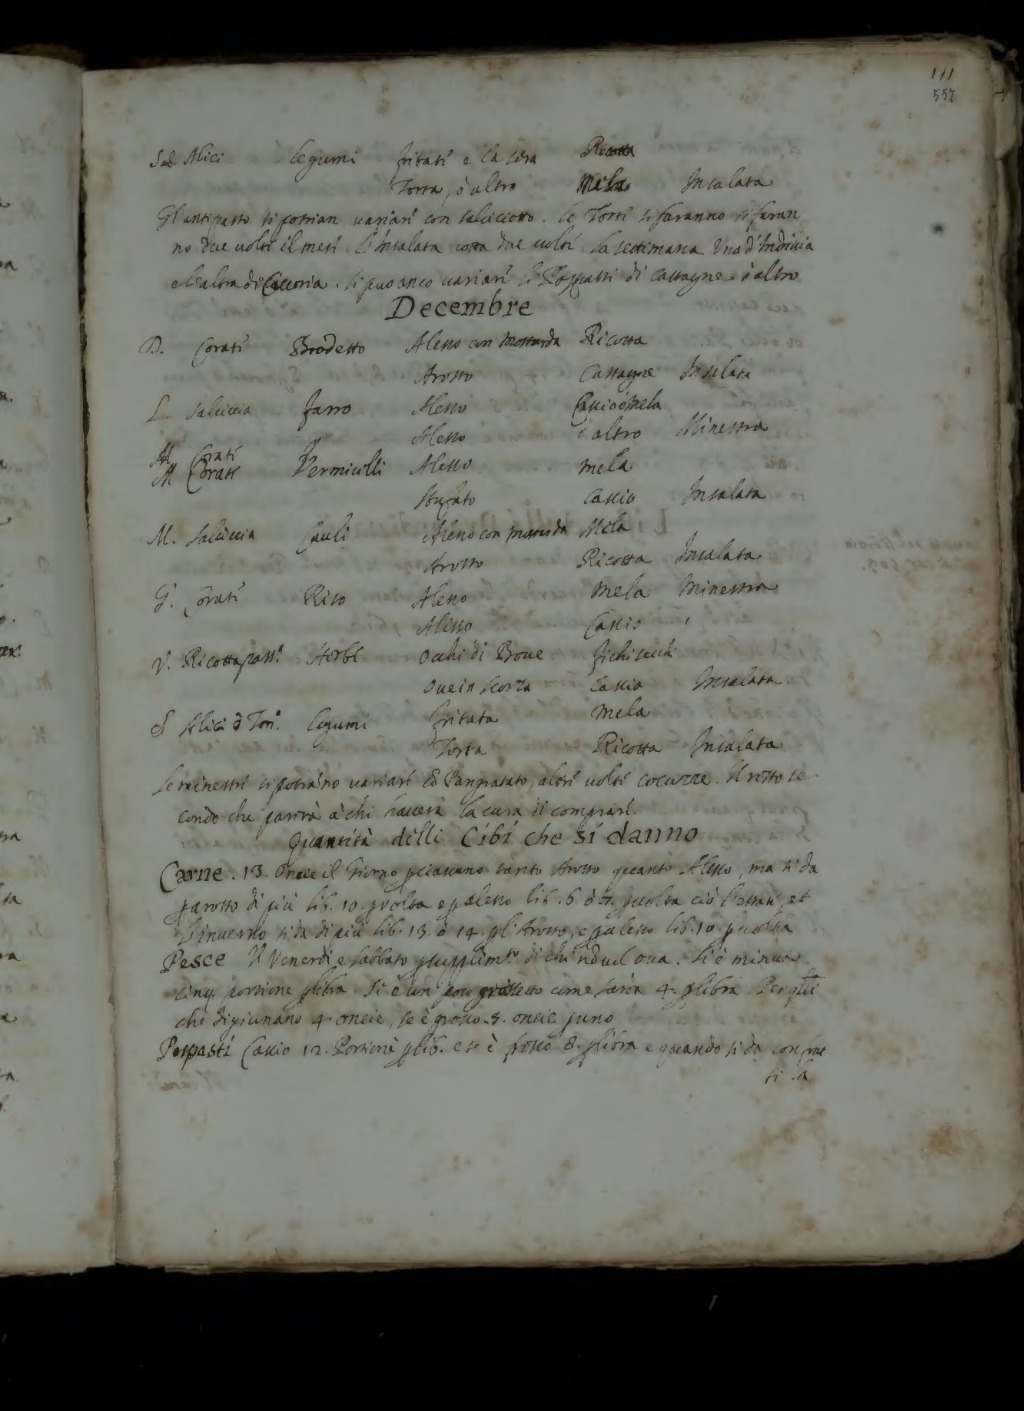 111
557
Sab. Alici legumi fritati e la sera Ricotta
Torta, ò altro Mela Insalata
Gl'antipasto si potrian variari con salciccotto. Le Torti si faranno si faran
no due volti il mesi L'Insalata cotta due volti la settimana Una d'Indivia
e l'altra di Caccoria. Si può anco variari li Pospasti di castagne ò altro
Decembre
D. Corati Brodetto Alesso con mostarda Ricotta
Arosto Castagne Insalata
L. Salciccia Farro Alesso Casio è Mela
Alesso ò altro Minestra
M. Corati
M Corati Vermicelli Alesso mela
Stufato Casio Insalata
M. Salciccia Cauli Alesso con mostarda Mela
Arosto Ricotta Insalata
G. Corati Riso Alesso Mela Minestra
Alesso Casio
V. Ricotta pass. Herbe Occhi di Bove fichi secchi
Ove in scorza Casio Insalata
S Alici ò Ton.º legumi fritata Mela
Torta Ricotta Insalata
Le minestri si potranno variari ò Pangratato, altri volti cocuzze. Il resto se
condo che parirà à chi haverà la cura di comprari.
Quantità delli Cibi che si danno
Carne. 13. Oncie il Giorno p ciascuno tanto Arosto quanto Alesso, ma si da
p arosto di più lib. 10. p volta e p alesso lib. 6 ò 7. p volta ciò l'estati, et
L'inverno si da di più lib. 13. ò 14. p l'Arosto, e p alesso lib. 10 p volta
Pesce Il Venerdi, e sabbato p di chi nò vuol ova. Si è minuto
cinq. porzione p libra Si è un poco grossetto come saria 4. p libra Per
chi digiunano 4 oncie, se è grosso 5. oncie p uno
Pospasti Casio 12. Porzioni p lib. e se è fresco 8. p libra e quando si da con frut
ti la